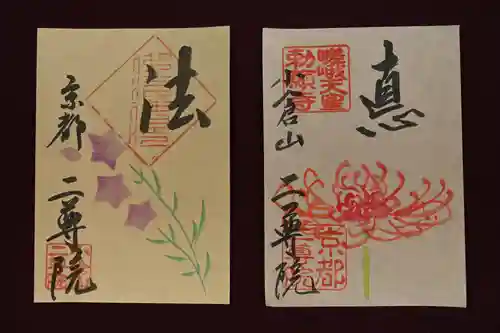 法
京都
二尊院
恵
小倉山
二尊院
嵯峨天皇
勅願寺
京都